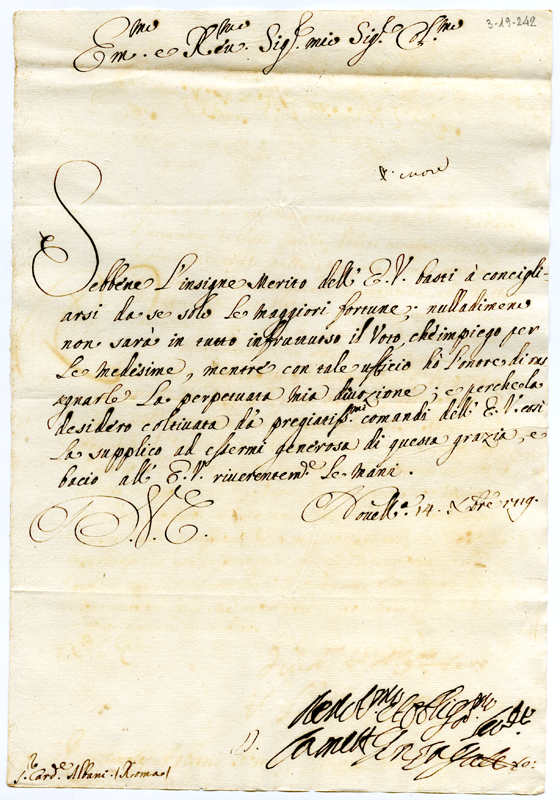 3-19-242
Em.mo e Reu.mo Sig.r mio Sig.r Col.mo
Sebbene L'insigne Merito dell' E.V. basti à concigli-
arsi da se solo Le maggiori fortune; nulladimeno
non sarà in tutto infruttuoso il Voto, che impiego per
Le Medesime, mentre con tale ufficio hò l'onore di ras
egnarle La perpetuata mia diuozione; e perche la
desidero coltiuata dà pregiatiss.mi comandi dell' E.V. cosi
La supplico ad essermi generosa di questa grazia, e
bacio all' E.V. riuerentem.te Le Mani.
14. Xbre 1719.
D.V.E.
Card.e Albani. (Roma)